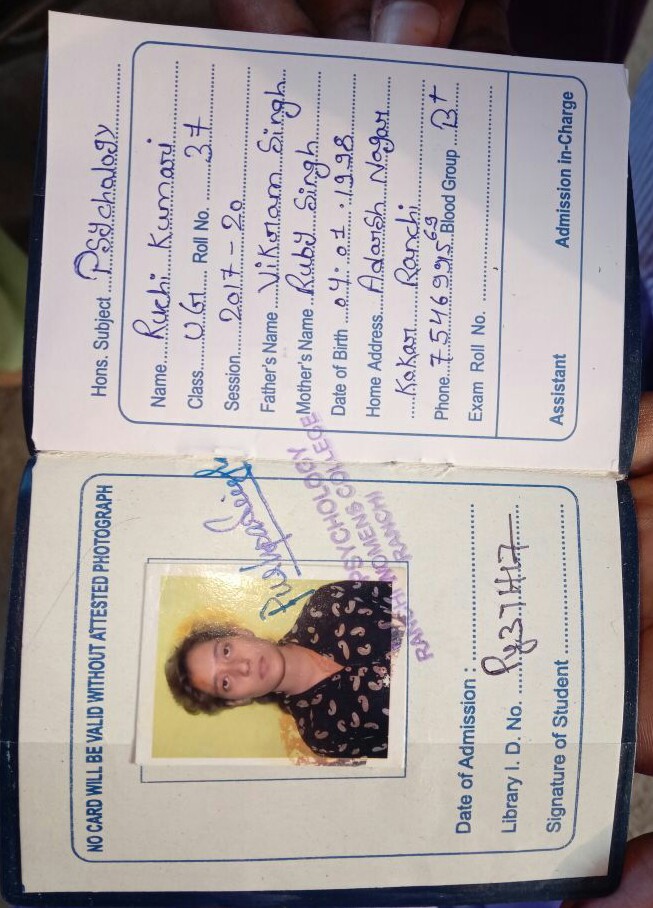 Hons. Subject Psychology
Name Ruchi Kumari
Class UG Roll No. 37
Session 2017-20
Father's Name Vikram Singh
Mother's Name Ruby Singh
Date of Birth 04.01.1998
Home Address Adarsh Nagar
Kokar Ranchi
Phone 75469956 69 Blood Group B+
Exam Roll No.
Assistant Admission in-Charge
NO CARD WILL BE VALID WITHOUT ATTESTED PHOTOGRAPH
PSYCHOLOGY
RANCHI WOMENS COLLEGE
RANCHI
Date of Admission :
Library I. D. No. Py37H17
Signature of Student